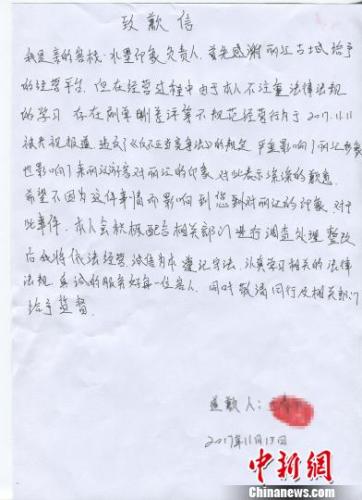 致歉信
我是亲的客栈·水墨印象负责人，首先感谢丽江古城给予
的经营平台，但在经营过程中由于本人不注重法律法规
的学习 存在刷单删差评等不规范经营行为于2017.11.11
被央视报道，违反了《反不正当竞争法》的规定，严重影响了丽江形象
也影响了来丽江游客对丽江的印象 对此表示深深的歉意
希望不因为这件事情而影响到您到对丽江的印象，对于
此事件，本人会积极配合相关部门进行调查处理 整改
后我将依法经营，诚信为本 遵纪守法，认真学习相关的法律
法规，真诚的服务好每一位客人，同时敬请同行及相关部门
给予监督。
道歉人：
2017年11月13日
中新网
Chinanews.com